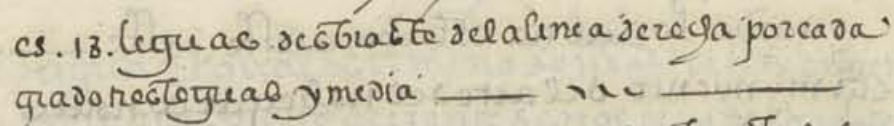 es. 13. leguas desbiaste dela linea derecha por cada
grado tres leguas y media